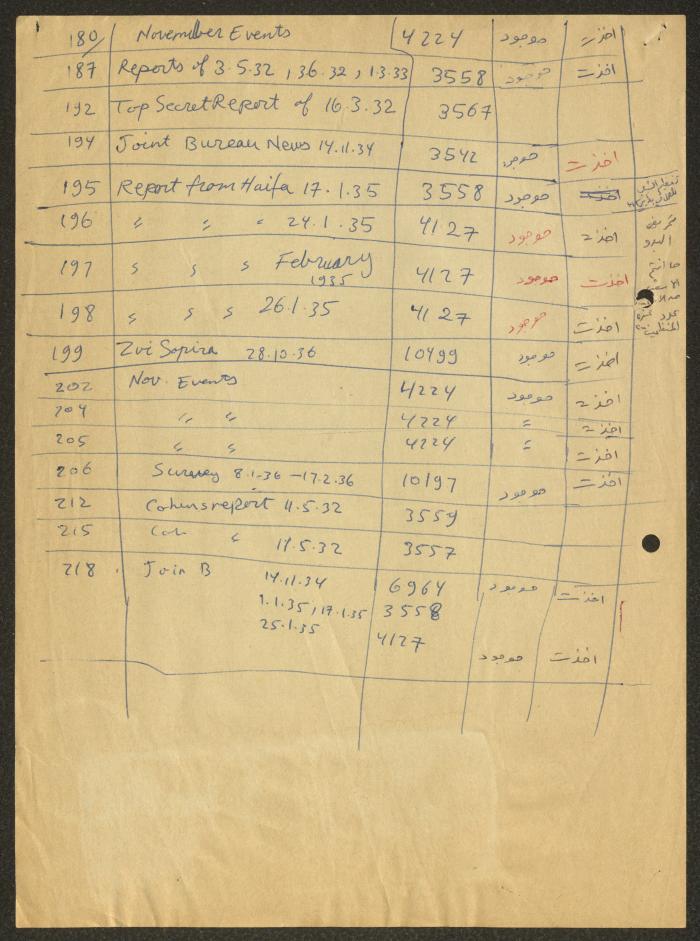 180/ November Events 4224 موجود اخذت
187 Reports of 3.5.32, 3.6.32, 1.3.33 3558 موجود اخذت
192 Top Secret Report of 16.3.32 3567
194 Joint Bureau News 14.11.34 3542 موجود اخذت
195 Report from Haifa 17.1.35 3558 موجود
196 " " " 24.1.35 4127 موجود اخذت
197 " " " February 1935 4127 موجود اخذت
198 " " " 26.1.35 4127 موجود اخذت
199 Zvi Sapira 28.10.36 10499 موجود اخذت
202 Nov. Events 4224 موجود اخذت
204 " " 4224 " اخذت
205 " " 4224 " اخذت
206 Survey 8.1.36 – 17.2.36 10197 موجود اخذت
212 Cohens report 11.5.32 3559
215 Coh " 17.5.32 3557
218 Join B 14.11.34 6964 موجود اخذت
1.1.35, 17.1.35 3558
25.1.35 4127 موجود اخذت